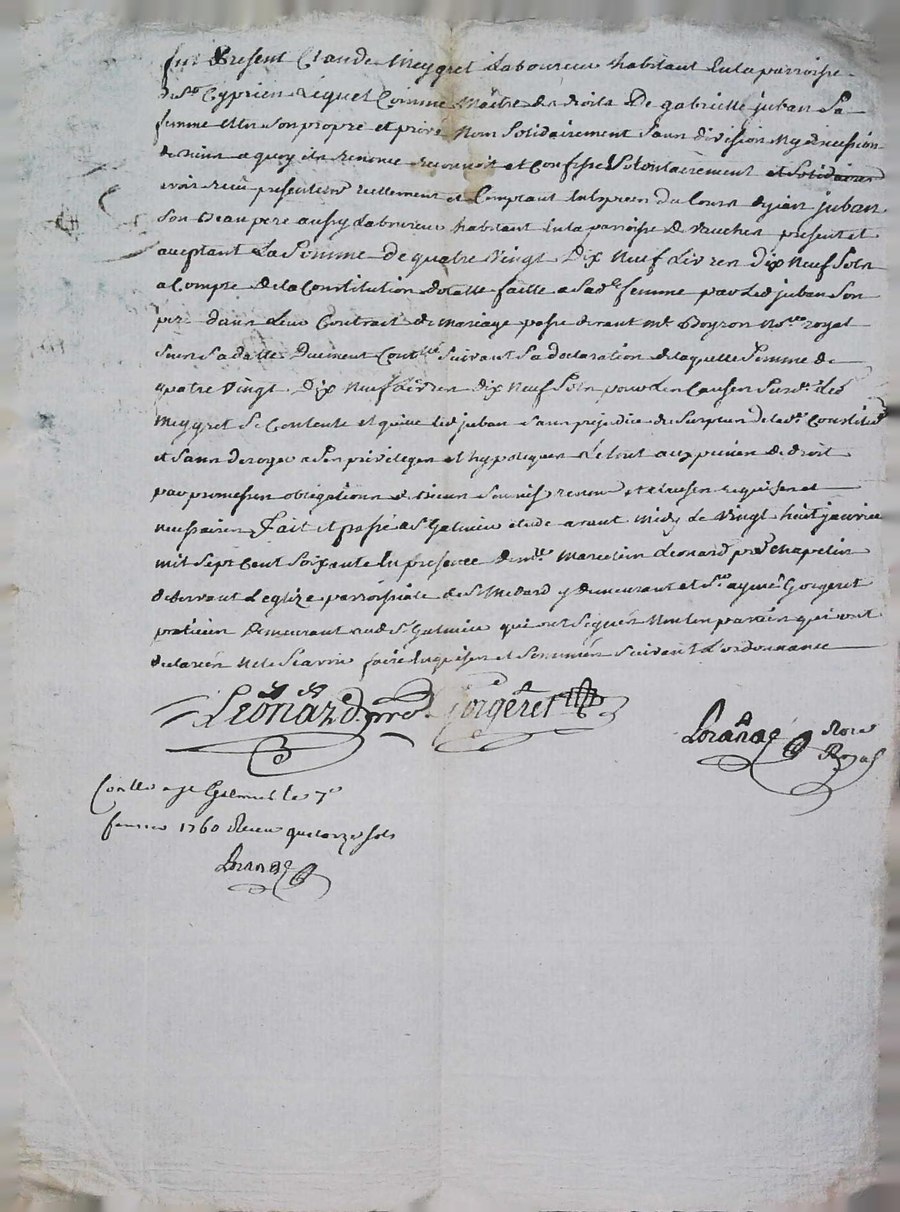 fut Present Claude Meygret Laboureur habitant en la parroisse
de St Cyprien lequel Comme Maitre des droits De gabrielle juban Sa
femme et en Son propre et privé Nom Solidairement Sans division Ny discussion
de biens a quoy ils renonce reconnoit et Confesse Volontairement et Solidairem
avoir reçu presentement reellement et Comptant en Especes du Cours de jean juban
Son Beau pere aussy Laboureur habitant en la parroisse de Vauchen present et
acceptant La Somme de quatre Vingt Dix Neuf Livres Dix Neuf Sols
a Compte de la Constitution dotalle faitte a Sad. femme par Led juban Son
pere dans Leur Contract de Mariage passé devant Me Boyron Nore royal
Sous Sa datte Duement Contllé Suivant Sa declaration de laquelle Somme de
quatre Vingt Dix Neuf Livres Dix Neuf Sols pour Les Causes Susd. Led
Meygret Se Contente et quitte led juban Sans prejudice du Surplus de lad. Constition
et Sans deroger a Ses privileges et hypoteques Le tout aux peines de droit
par promesses obligations de biens Soumis renon et clauses requises et
necessaires Fait et passé a St Galmier etude avant Midy le Vingt huit janvier
mil Sept Cent Soixante En presence de mre Marcelin Leonard pre Chapelin
desservant L'eglize parroissiale de St Medard y demeurant et Sr aymé Gorgeret
praticien Demeurant aud. St Galmier qui ont Signés Non les parties qui ont
declarés Ne le Scavoir faire Enquises et Sommées Suivant L'ordonnance
Leonard pre Gorgeret
Loranae Nore
Royal
Contllé a St Galmier le 7e
fevrier 1760 Receu quatorze sols
Loranae